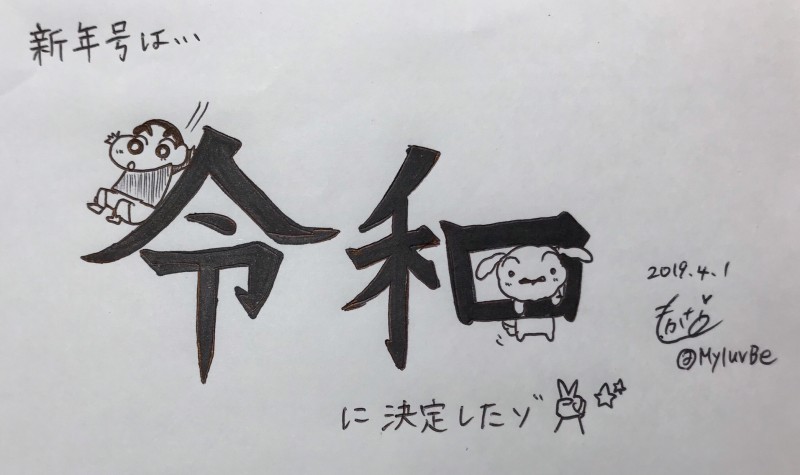 新年号は…
令和
に決定したゾ
2019.4.1
@MyluvBe